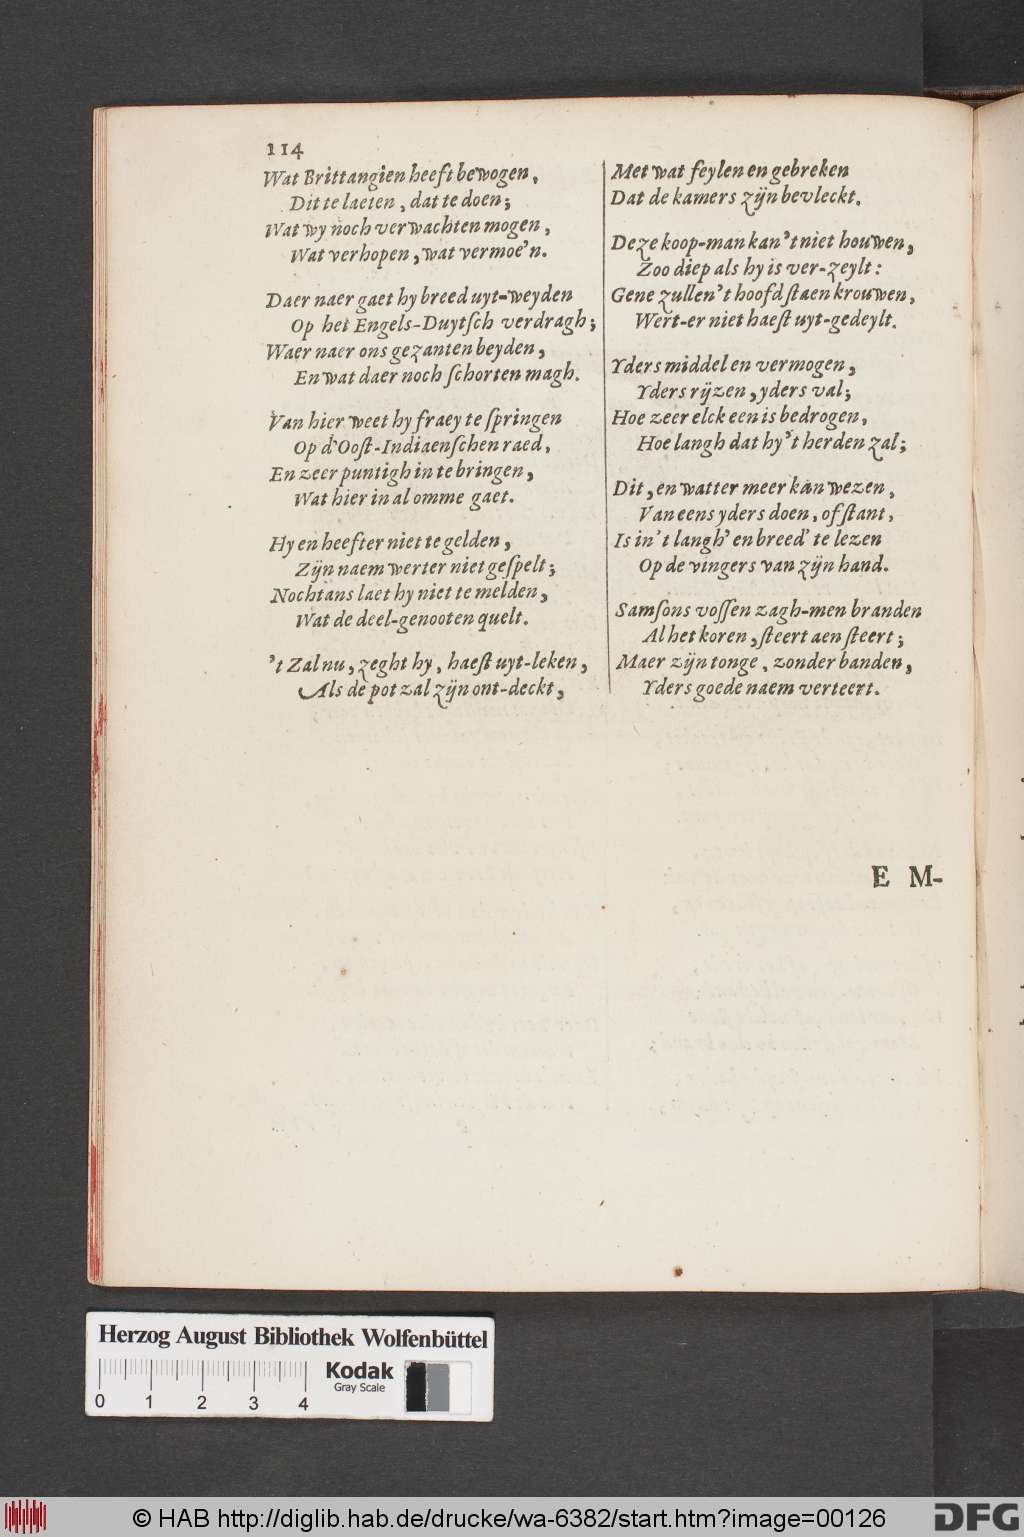 114
Wat Brittangien heeft bewogen,
Dit te laeten, dat te doen;
Wat wy noch verwachten mogen,
Wat verhopen, wat vermoe'n.
Daer naer gaet hy breed uyt-weyden
Op het Engels-Duytſch verdragh;
Waer naer ons gezanten beyden,
En wat daer noch ſchorten magh.
Van hier weet hy fraey te ſpringen
Op d'Ooſt-Indiaenſchen raed,
En zeer puntigh in te bringen,
Wat hier in al omme gaet.
Hy en heefter niet te gelden,
Zijn naem werter niet geſpelt;
Nochtans laet hy niet te melden,
Wat de deel-genooten quelt.
't Zal nu, zeght hy, haeſt uyt-leken,
Als de pot zal zijn ont-deckt,
Met wat feylen en gebreken
Dat de kamers zijn bevleckt.
Deze koop-man kan 't niet houwen,
Zoo diep als hy is ver-zeylt:
Gene zullen 't hoofd ſtaen krouwen,
Wert-er niet haeſt uyt-gedeylt.
Yders middel en vermogen,
Yders rijzen, yders val;
Hoe zeer elck een is bedrogen,
Hoe langh dat hy 't herden zal;
Dit, en watter meer kan wezen,
Van eens yders doen, of ſtant,
Is in 't langh' en breed' te lezen
Op de vingers van zijn hand.
Samſons voſſen zagh-men branden
Al het koren, ſteert aen ſteert;
Maer zijn tonge, zonder banden,
Yders goede naem verteert.
E M-
Herzog August Bibliothek Wolfenbüttel
Kodak
Gray Scale
0 1 2 3 4
© HAB http://diglib.hab.de/drucke/wa-6382/start.htm?image=00126
DFG